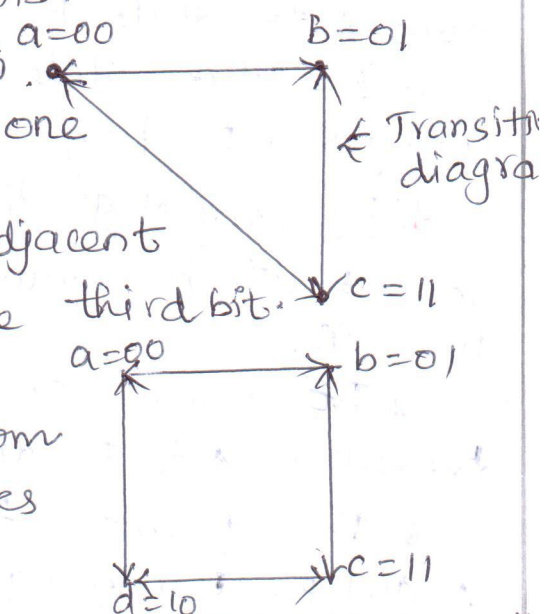 a=00 b=01
one
← Transiti
diagra
djacent
third bit. c=11
a=00 b=01
om
es
c=11
d=10